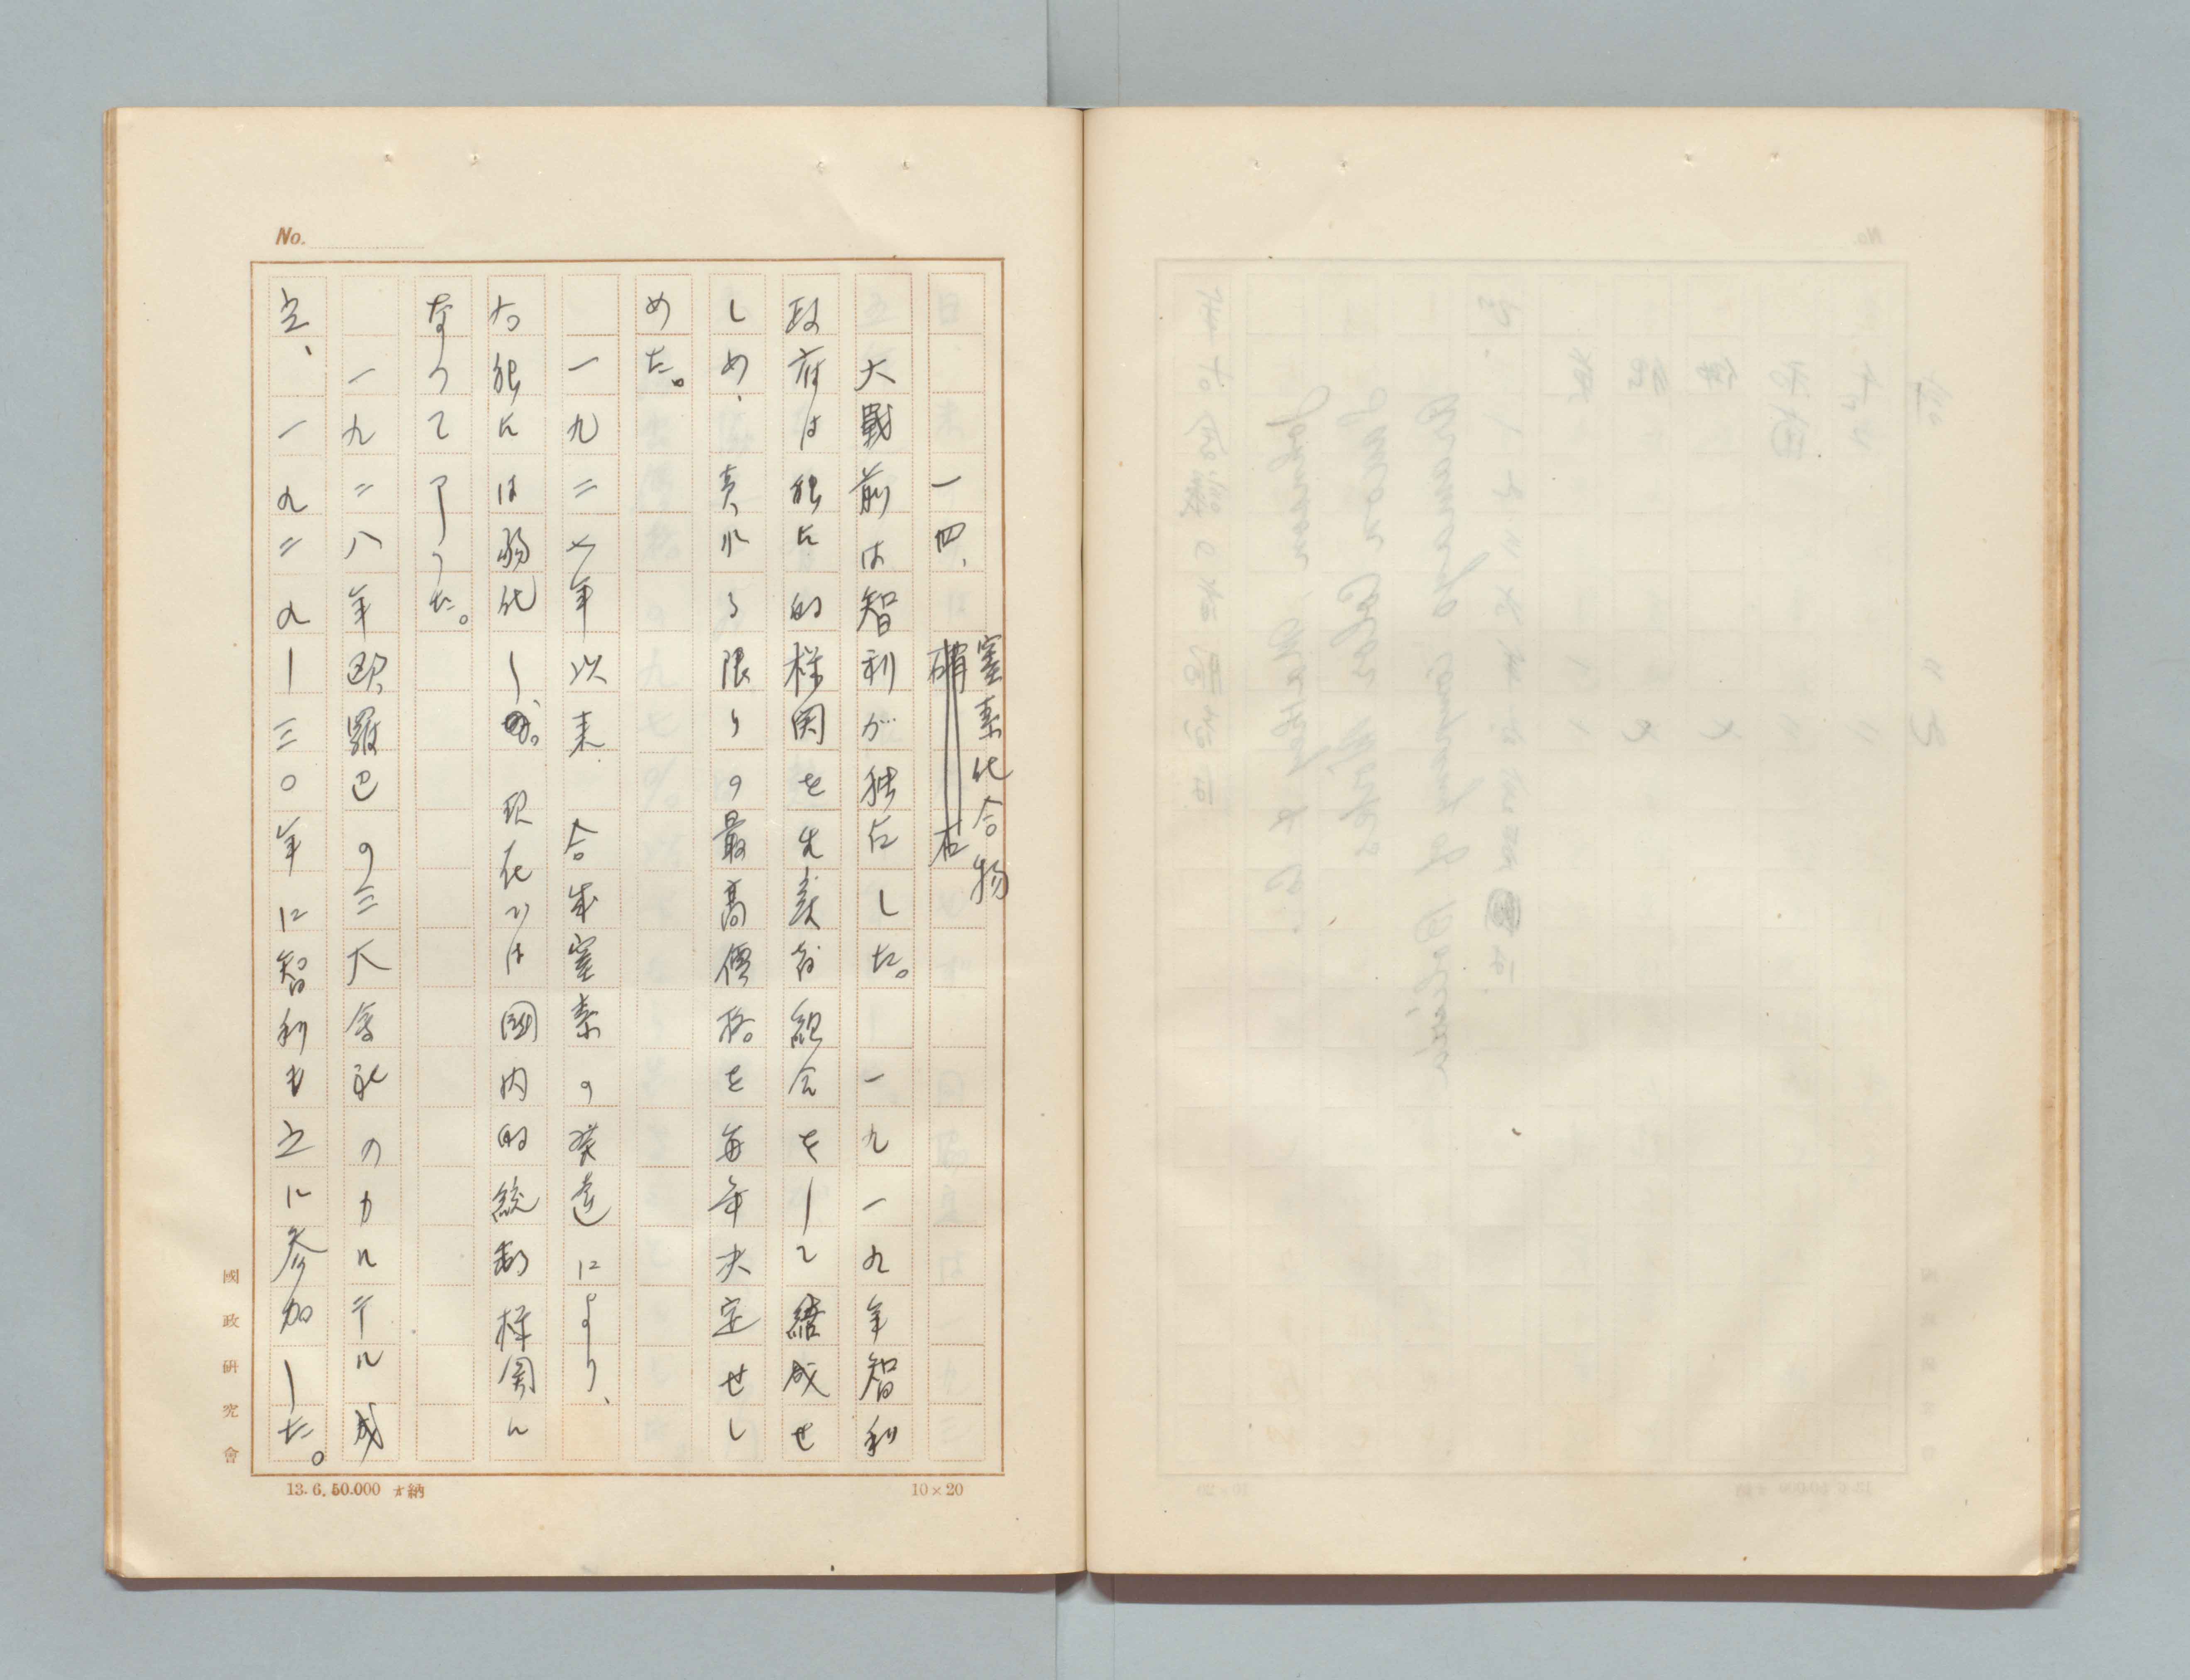 一四、窒素化合物
大戰前は智利が独占した。一九一九年智利
政府は独占的機関を生産者組合をして結成せ
しめ、賣れる限りの最高價格を毎年決定せし
めた。
一九二七年以来 合成窒素の発達により、
右独占は弱化し、現在では國内的統制機関に
なつてしまつた。
一九二八年欧羅巴の三大会社のカルテル成
立、一九二九—三〇年に智利も之に参加した。
No.
國政研究會
13.6.50.000 納
10×20